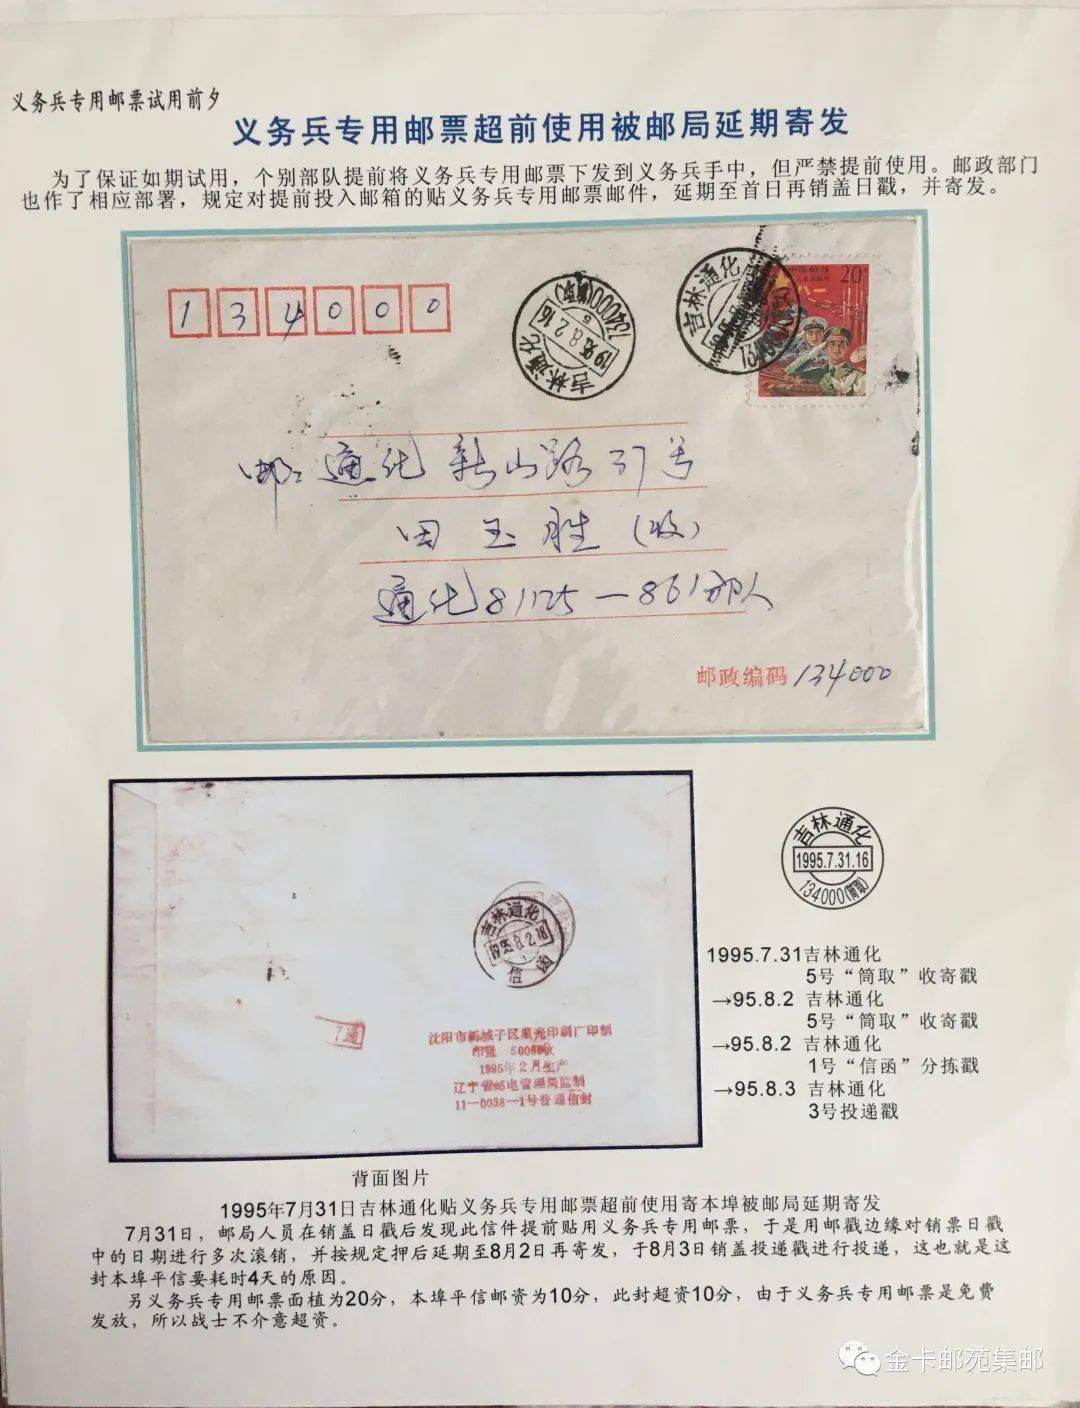 义务兵专用邮票试用前夕
义务兵专用邮票超前使用被邮局延期寄发
为了保证如期试用，个别部队提前将义务兵专用邮票下发到义务兵手中，但严禁提前使用。邮政部门
也作了相应部署，规定对提前投入邮箱的贴义务兵专用邮票邮件，延期至首日再销盖日戳，并寄发。
134000
吉林通化
1995.8.2.16
134000(筒取)
5
吉林通化
中国邮政
20
八一
邮: 通化新山路37号
田玉胜(收)
通化81125－861部队
邮政编码 134000
吉林通化
1995.8.2.18
信函
7通
沈阳市新城子区星光印刷厂印制
印量 50000枚
1995年2月生产
辽宁省邮电管理局监制
11—0038—1号普通信封
吉林通化
1995.7.31.16
134000(筒取)
1995.7.31吉林通化
5号“筒取”收寄戳
→95.8.2 吉林通化
5号“筒取”收寄戳
→95.8.2 吉林通化
1号“信函”分拣戳
→95.8.3 吉林通化
3号投递戳
背面图片
1995年7月31日吉林通化贴义务兵专用邮票超前使用寄本埠被邮局延期寄发
7月31日，邮局人员在销盖日戳后发现此信件提前贴用义务兵专用邮票，于是用邮戳边缘对销票日戳
中的日期进行多次滚销，并按规定押后延期至8月2日再寄发，于8月3日销盖投递戳进行投递，这也就是这
封本埠平信要耗时4天的原因。
另义务兵专用邮票面植为20分，本埠平信邮资为10分，此封超资10分，由于义务兵专用邮票是免费
发放，所以战士不介意超资。
金卡邮苑集邮